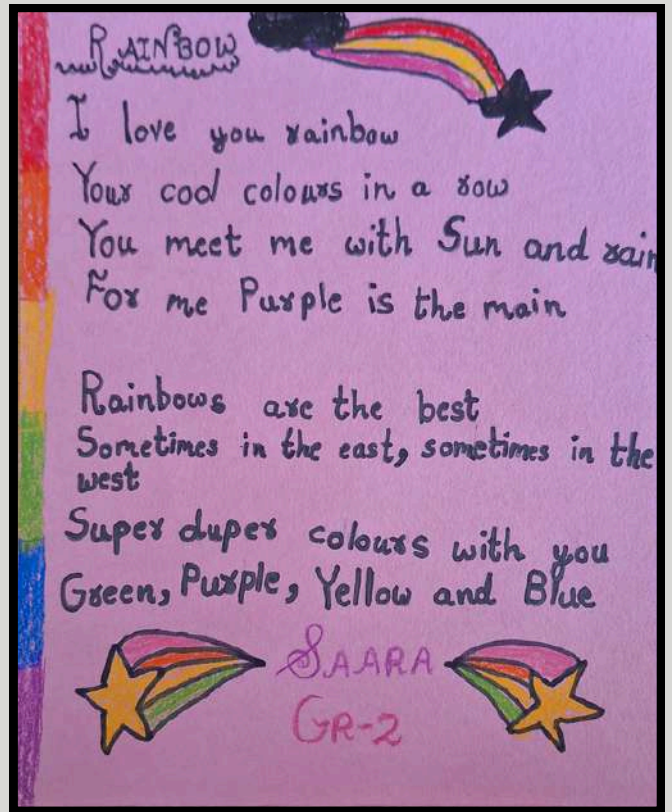 RAINBOW
I love you rainbow
Your cool colours in a row
You meet me with Sun and rain
For me Purple is the main
Rainbows are the best
Sometimes in the east, sometimes in the
west
Super duper colours with you
Green, Purple, Yellow and Blue
SAARA
GR-2